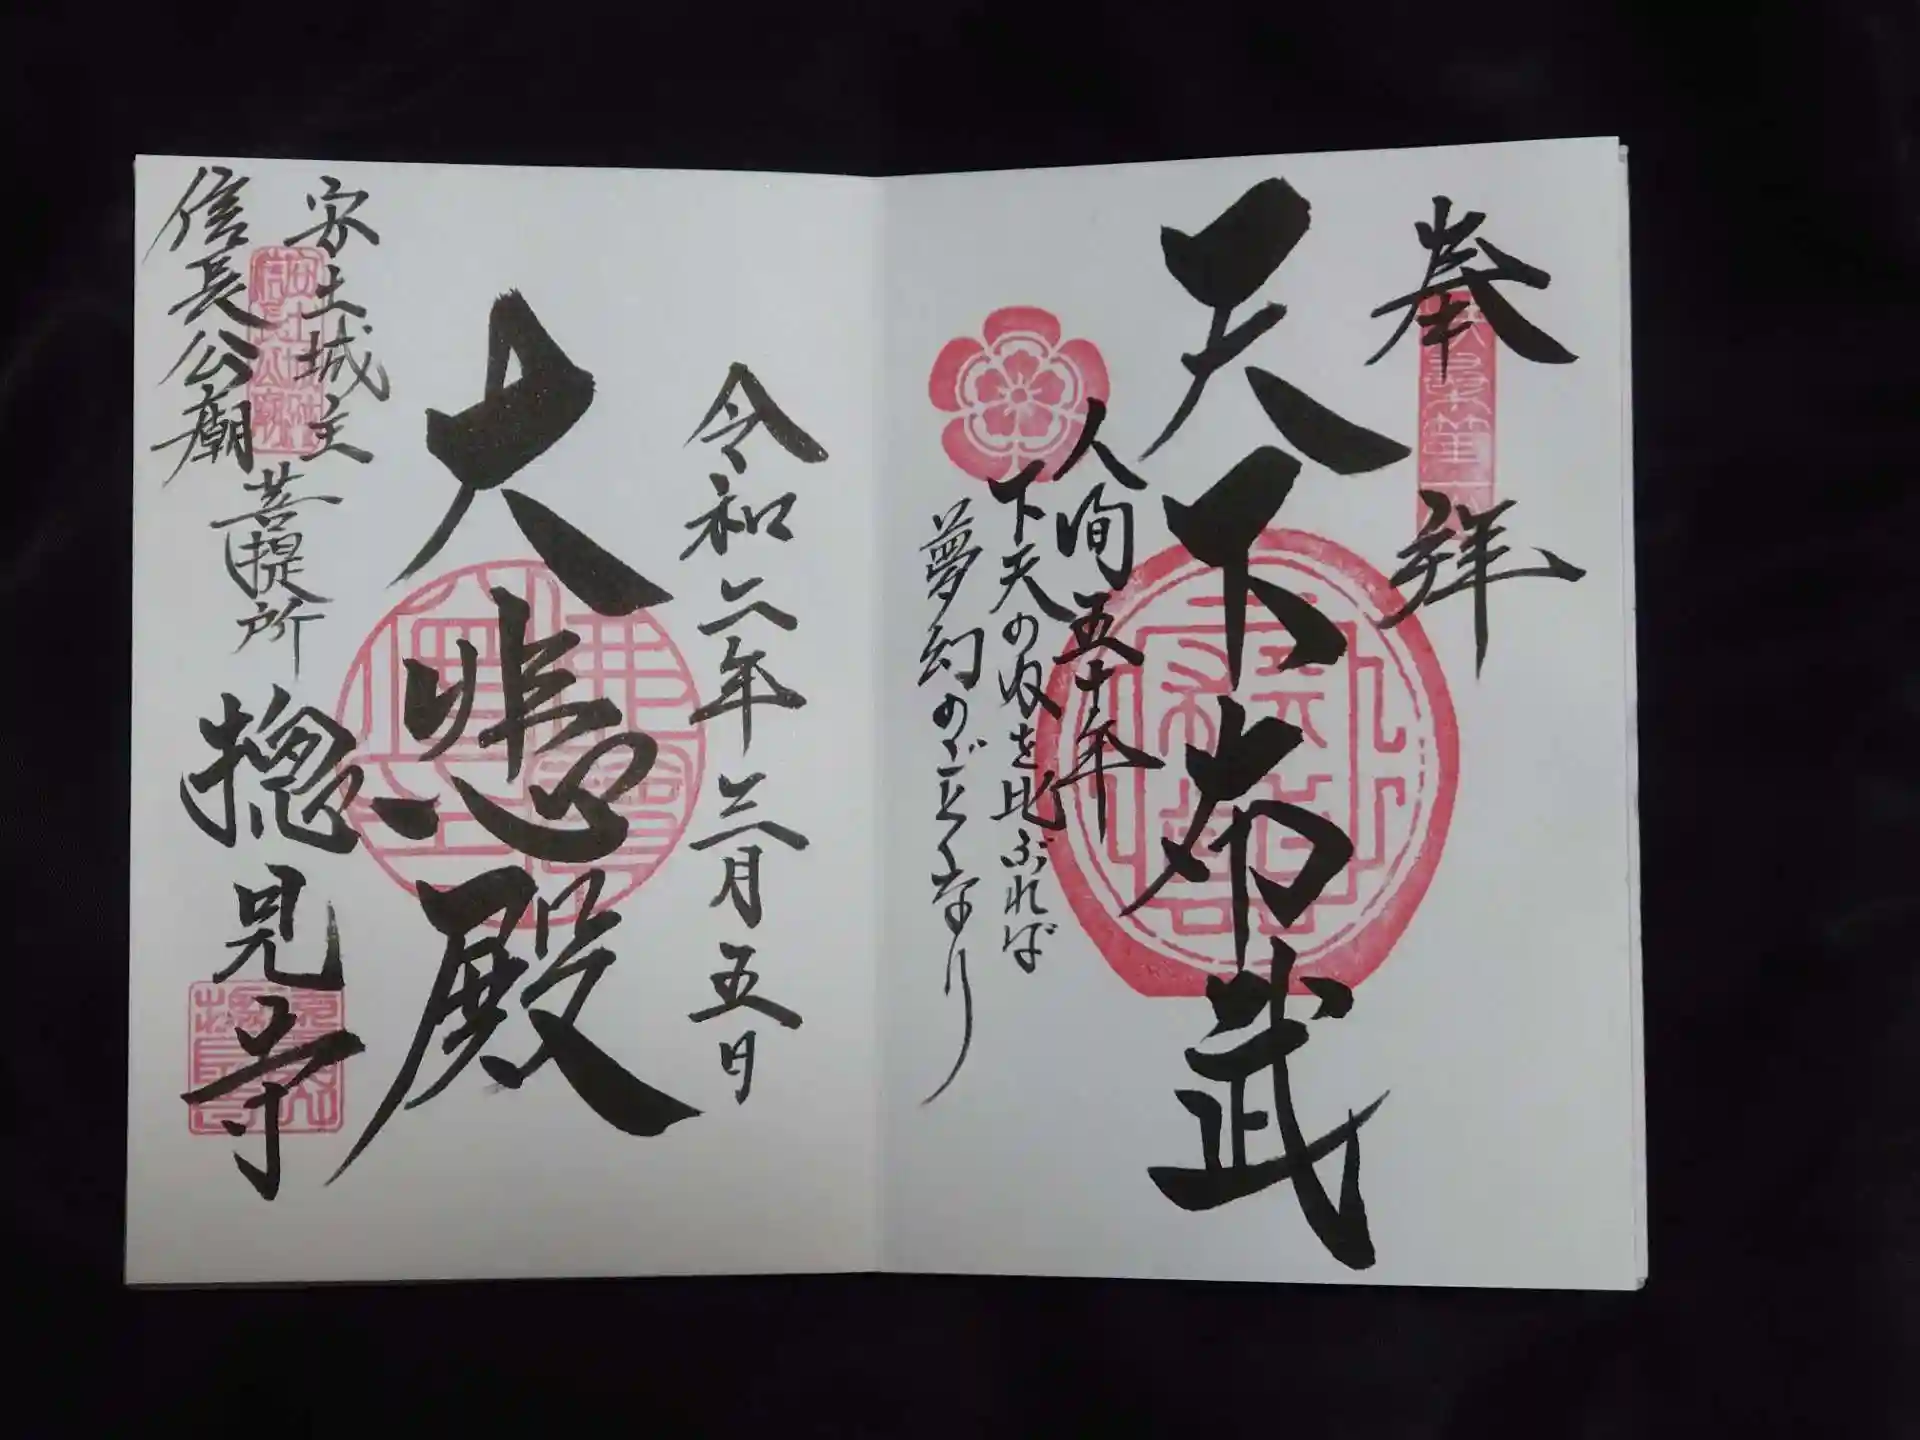 奉拝
天下布武
人間五十年
下天の内を比ぶれば
夢幻のごとくなり
令和二年三月五日
大悲殿
安土城主
信長公廟
菩提所
摠見寺